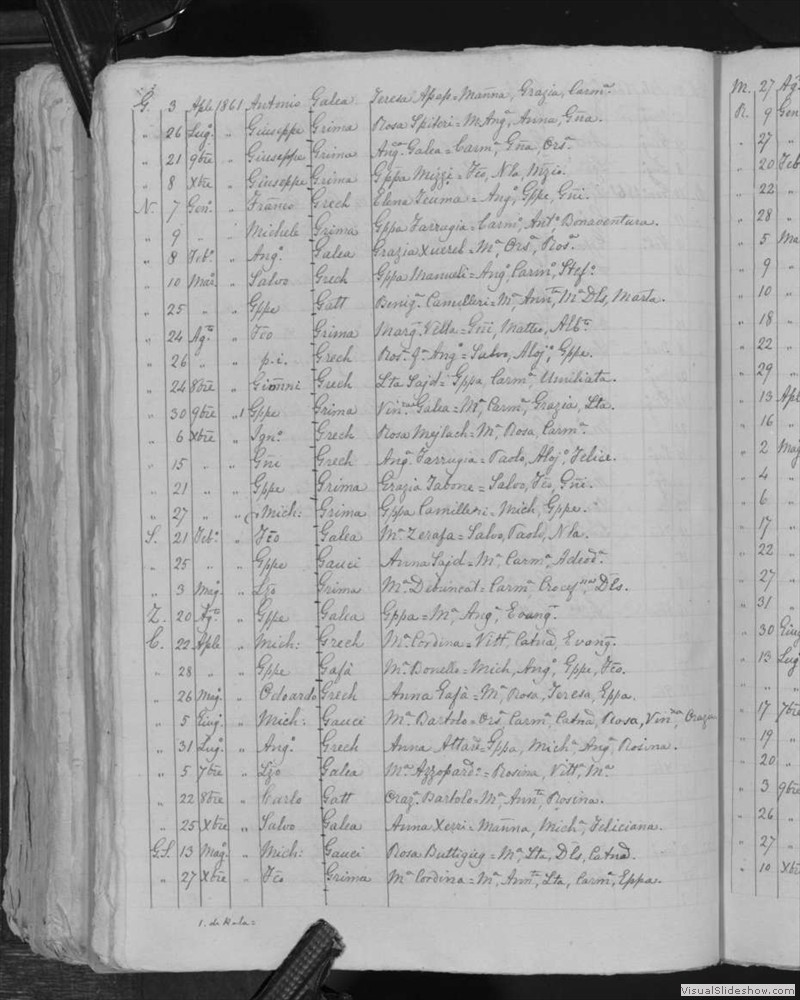 G. 3 Aple 1861 Antonio Galea Teresa Apap = Manna, Grazia, Carmª
" 26 Lugº " Giuseppe Grima Rosa Spiteri = M. Angª, Anna, Gña.
" 21 9bre " Giuseppe Grima Angª Galea = Carmª, Gña, Orsª
" 8 Xbre " Giuseppe Grima Gppa Mizzi = Fco, Nla, Nzio.
N. 7 Genº " Franco Grech Elena Teuma = Angº, Gppe, Gni.
" 9 " Michele Grima Gppa Farrugia = Carmª, Antª, Bonaventura.
" 8 Febº " Angº Galea Grazia Xuereb = Mª, Orsª, Rosª
" 10 Mar. " Salvo Grech Gppa Manueli = Angª, Carmª, Stefº
" 25 " " Gppe Gatt Benigª Camilleri = Mª, Annª, Mª Dls, Marta.
" 24 Agº " Fco Grima Marg. Villa = Gni, Matteo,
" 26 " " p.i. Grech Rosª qm Angº = Salvo, Alojº, Gppe.
" 24 8bre " Giovnni Grech Lta Sajd = Gppa, Carmª, Umiliata.
" 30 9bre " 1 Gppe Grima Vinª Galea = Mª, Carmª, Grazia, Lta.
" 6 Xbre " Ignº Grech Rosa Mejlach = Mª, Rosa, Carmª
" 15 " " Gni Grech Angª Farrugia = Paolo, Alojº, Felice.
" 21 " " Gppe Grima Grazia Tabone = Salvo, Fco, Gni.
" 27 " " Mich: Grima Gppa Camilleri = Mich, Gppe.
S. 21 Febº " Fco Galea Mª Zerafa = Salvo, Paolo, Nla.
" 25 " " Gppe Gauci Anna Sajd = Mª, Carmª, Adeodª
" 3 Magº " Lzo Grima Mª Debincat = Carmª, Crocefª, Dls.
Z. 20 Agº " Gppe Galea Gppa = Mª, Angª, Evang.
C. 22 Aple " Mich: Grech Mª Cordina = Vittª, Catna, Evang.
" 28 " " Gppe Gafà Mª Bonello = Mich, Angº, Gppe, Fco.
" 26 Mag. " Odoardo Grech Anna Gafà = Mª, Rosa, Teresa, Gppa.
" 5 Giug. " Mich: Gauci Mª Bartolo = Orsª, Carmª, Catna, Rosa, Vinª, Orazia
" 31 Lugº " Angº Grech Anna Attard = Gppa, Michª, Angª, Rosina.
" 5 7bre " Lzo Galea Mª Azzopardi = Rosina, Vittª, Mª
" 22 8bre " Carlo Gatt Orazª Bartolo = Mª, Annª, Rosina.
" 25 Xbre " Salvo Galea Anna Xerri = Manna, Michª, Feliciana.
G.S. 13 Magº " Mich: Gauci Rosa Buttigieg = Mª, Lta, Dls, Catna.
" 27 Xbre " Fco Grima Mª Cordina = Mª, Annª, Lta, Carmª, Gppa.
1. de Kala =
M. 27 Agº
R. 9 Gen
" 27 "
" 20 Feb
" 22
" 28
" 5 Ma
" 9
" 10
" 18
" 22
" 29
" 13 Apl
" 16
" 2 Mag
" 4
" 6
" 17
" 22
" 27
" 31
" 30 Giug
" 13 Lug
" " "
" 17 7bre
" 19
" 20
" 3 9bre
" 26
" 27
" 10 Xbr
VisualSlideshow.com